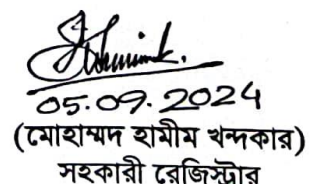 05.09.2024
(মোহাম্মদ হামীম খন্দকার)
সহকারী রেজিস্ট্রার